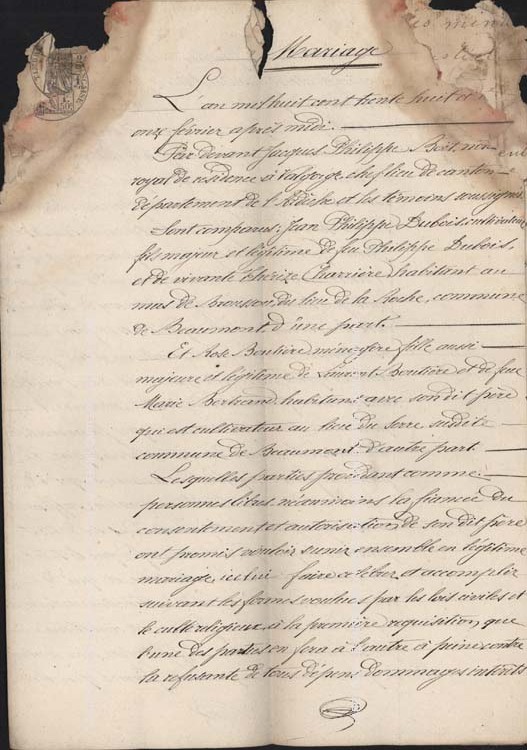 Mariage
L'an mil huit cent trente huit et
onze février après midi.
Par devant Jacques Philippe Boët, no
royal de résidence à Valgorge chef lieu de canton
département de l'Ardèche et les témoins soussignés
Sont comparus: Jean Philippe Dubois, cultivateur
fils majeur et légitime de feu Philippe Dubois,
et de vivante Thérèze Charrière, habitant au
mas de du lieu de la Roche, commune
de Beaumont d'une part.
Et Rose Boutière ménagère fille aussi
majeure et légitime de Laurent Boutière et de feue
Marie Bertrand, habitans avec son dit père
qui est cultivateur au lieu du Serre susdite
commune de Beaumont d'autre part.
Lesquelles parties procédant comme
personnes libres néanmoins la fiancée du
consentement et autorisation de son dit père
ont promis vouloir s'unir ensemble en légitime
mariage, icelui faire célébrer et accomplir
suivant les formes voulues par les lois civiles et
le culte religieux à la première requisition que
l'une des parties en fera à l'autre à peine contre
la refusante de tous dépens dommages intérêts